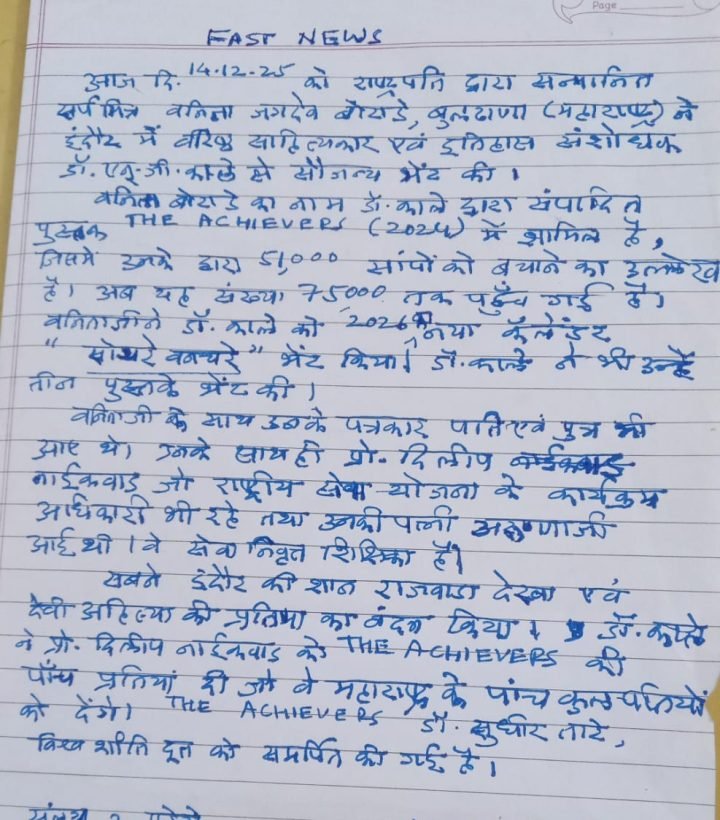 Page
FAST NEWS
आज दि. 14.12.25 को राष्ट्रपति द्वारा सन्मानित
सर्प मित्र वनिता जगदेव बोराडे, बुलढाणा (महाराष्ट्र) ने
इंदौर में वरिष्ठ साहित्यकार एवं इतिहास संशोधक
डॉ. एन.जी. काले से सौजन्य भेंट की।
वनिता बोराडे का नाम डॉ. काले द्वारा संपादित
पुस्तक THE ACHIEVERS (2024) में शामिल है,
जिसमें उनके द्वारा 51,000 सांपों को बचाने का उल्लेख
है। अब यह संख्या 75,000 तक पहुँच गई है।
वनिताजी ने डॉ. काले को 2026 का नया कॅलेंडर
" सोयरे वनचरे " भेंट किया। डॉ. काले ने भी उन्हें
तीन पुस्तके भेंट की।
वनिताजी के साथ उनके पत्रकार पति एवं पुत्र भी
आए थे। उनके साथ ही प्रो. दिलीप
नाईकवाड जो राष्ट्रीय सेवा योजना के कार्यक्रम
अधिकारी भी रहे तथा उनकी पत्नी अरुणाजी
आई थी। वे सेवा निवृत्त शिक्षिका है।
सबने इंदौर की शान राजवाडा देखा एवं
देवी अहिल्या की प्रतिमा का वंदन किया। डॉ. काले
ने प्रो. दिलीप नाईकवाड को THE ACHIEVERS की
पाँच प्रतियां दी जो वे महाराष्ट्र के पांच कुलपतियों
को देंगे। THE ACHIEVERS डॉ. सुधीर तारे,
विश्व शांति दूत को समर्पित की गई है।